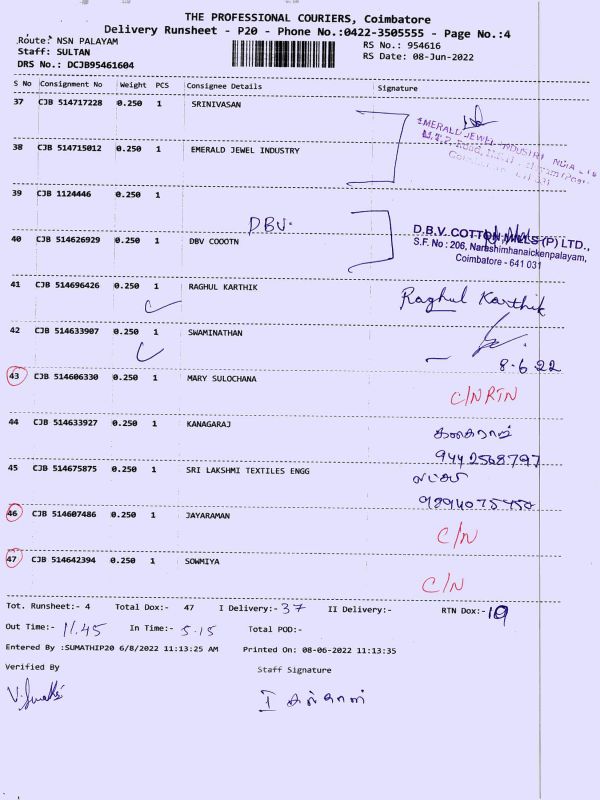 THE PROFESSIONAL COURIERS, Coimbatore
Delivery Runsheet - P20 - Phone No.:0422-3505555 - Page No.:4
Route: NSN PALAYAM
RS No.: 954616
Staff: SULTAN
RS Date: 08-Jun-2022
DRS No.: DCJB95461604
S No Consignment No Weight PCS Consignee Details Signature
37 CJB 514717228 0.250 1 SRINIVASAN
EMERALD JEWEL INDUSTRY INDIA
38 CJB 514715012 0.250 1 EMERALD JEWEL INDUSTRY
39 CJB 1124446 0.250 1
DBV.
D.B.V. COTTON MILLS (P) LTD.,
40 CJB 514626929 0.250 1 DBV COOOTN
S.F. No : 206, Narashimhanaickenpalayam,
Coimbatore - 641 031
41 CJB 514696426 0.250 1 RAGHUL KARTHIK
Raghul Karthik
42 CJB 514633907 0.250 1 SWAMINATHAN
8.6.22
43 CJB 514606330 0.250 1 MARY SULOCHANA
C/N RTN
44 CJB 514633927 0.250 1 KANAGARAJ
9442568797
45 CJB 514675875 0.250 1 SRI LAKSHMI TEXTILES ENGG
46 CJB 514607486 0.250 1 JAYARAMAN
C/N
47 CJB 514642394 0.250 1 SOWMIYA
C/N
Tot. Runsheet:- 4 Total Dox:- 47 I Delivery:- 37 II Delivery:- RTN Dox:- 10
Out Time:- 11.45 In Time:- 5.15 Total POD:-
Entered By :SUMATHIP20 6/8/2022 11:13:25 AM Printed On: 08-06-2022 11:13:35
Verified By Staff Signature